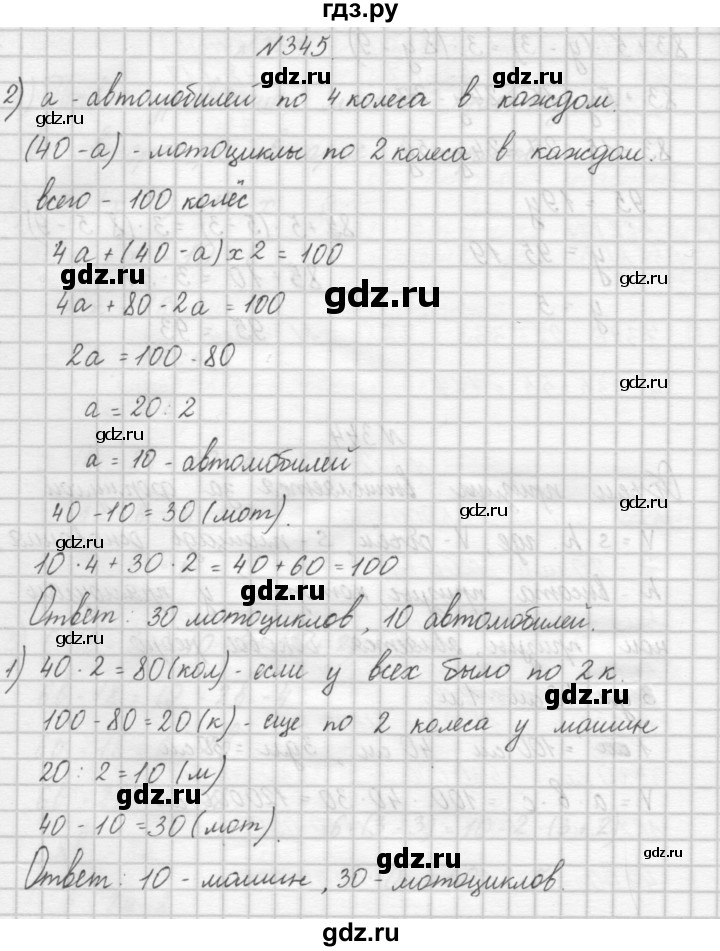 гдз.ру
№345
gdz.ru
2) а - автомобилей по 4 колеса в каждом.
gdz.ru
gdz.ru
(40 - а) - мотоциклы по 2 колеса в каждом.
всего - 100 колёс
gdz.ru
gdz.ru
4а + (40 - а) х 2 = 100
gdz.ru
gdz.ru
4а + 80 - 2а = 100
gdz.ru
2а = 100 - 80
gdz.ru
а = 20 : 2
gdz.ru
а = 10 - автомобилей
40 - 10 = 30 (мот).
gdz.ru
gdz.ru
gdz.ru
10 · 4 + 30 · 2 = 40 + 60 = 100
gdz.ru
Ответ: 30 мотоциклов, 10 автомобилей.
gdz.ru
1) 40 · 2 = 80 (кол) - если у всех было по 2 к.
gdz.ru
100 - 80 = 20 (к) - еще по 2 колеса у машин
20 : 2 = 10 (м)
gdz.ru
40 - 10 = 30 (мот).
gdz.ru
gdz.ru
Ответ: 10 - машин, 30 - мотоциклов.
gdz.ru